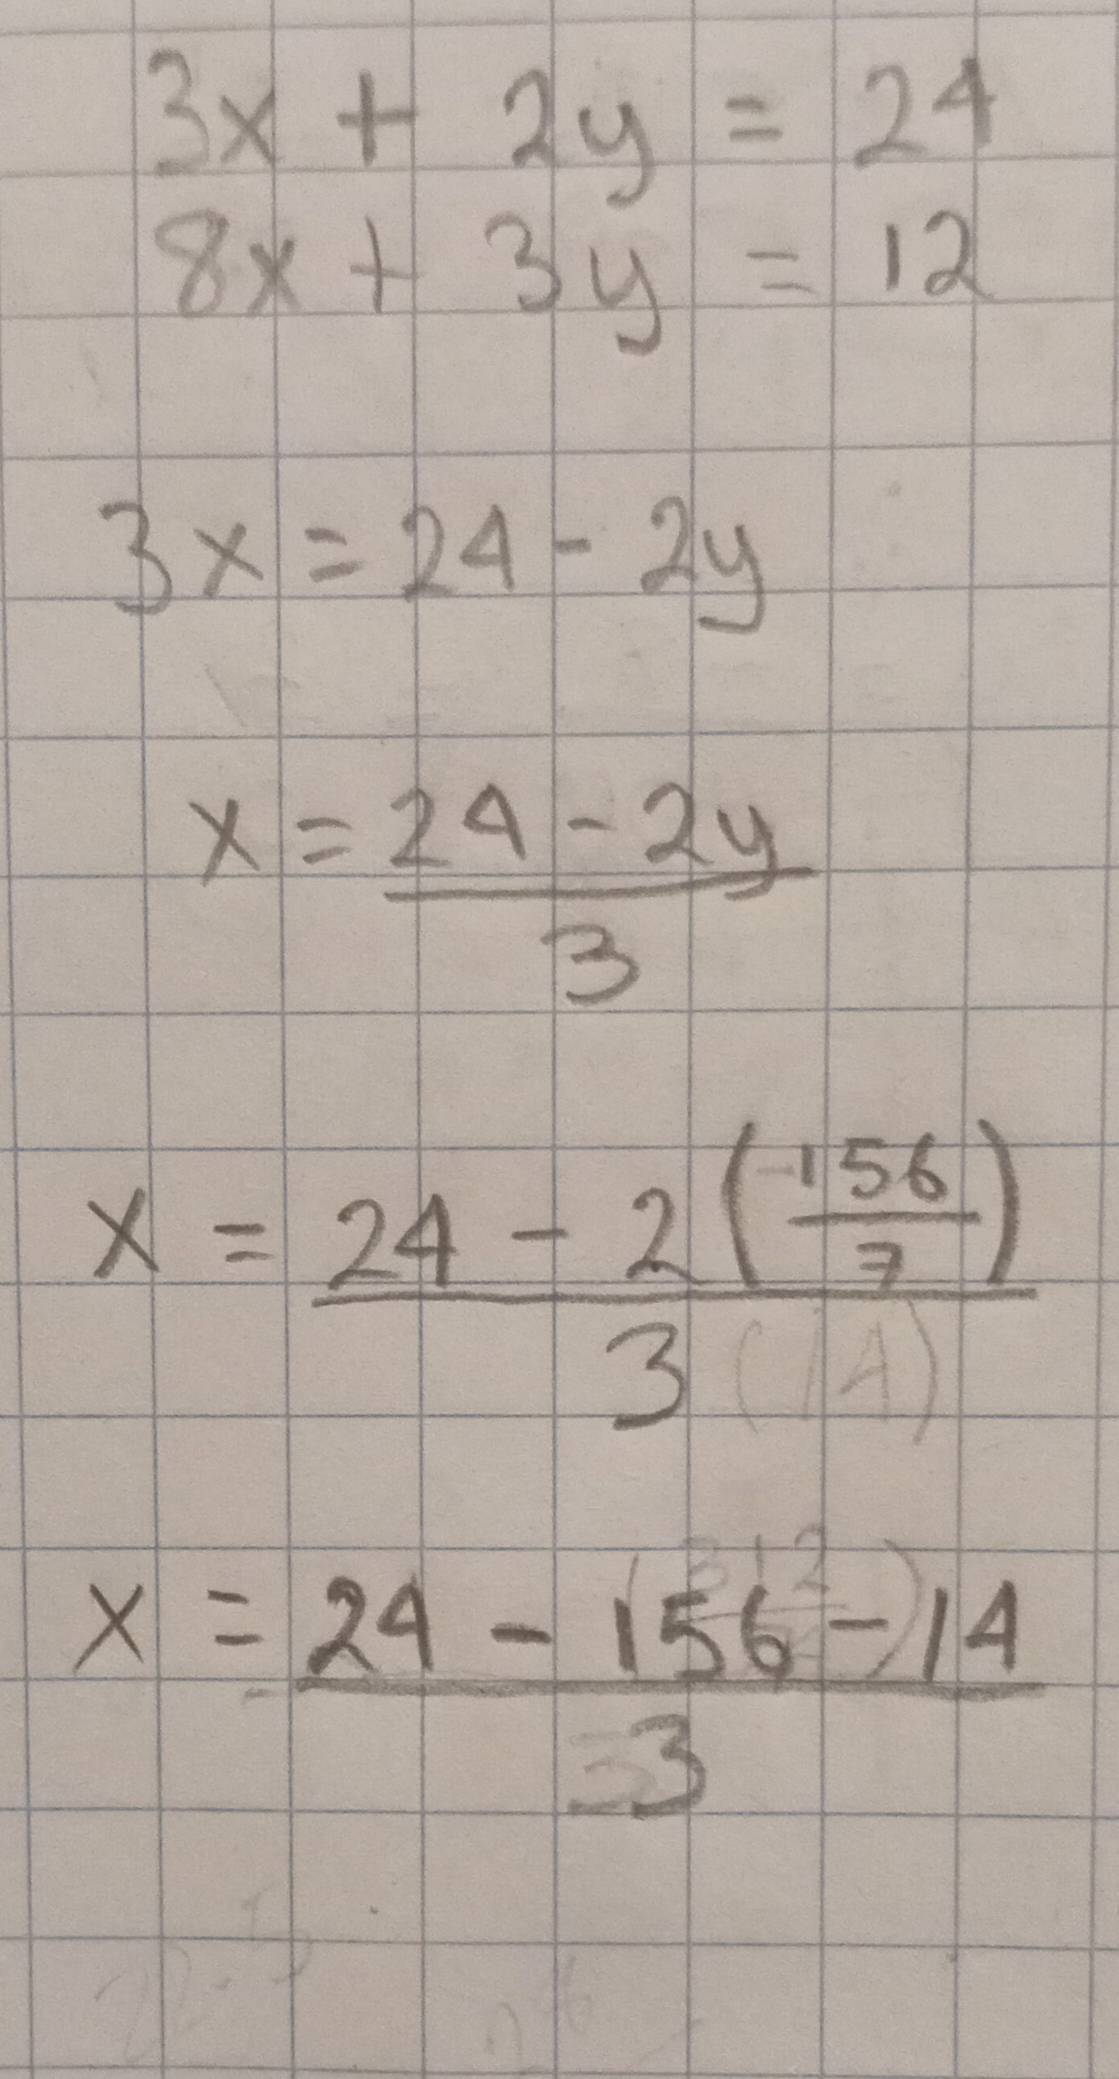 3x + 2y = 24
8x + 3y = 12
3x = 24 - 2y
x = 24 - 2y
3
x = 24 - 2 (156
7)
3 (14)
x = 24 - 156 - 14
3